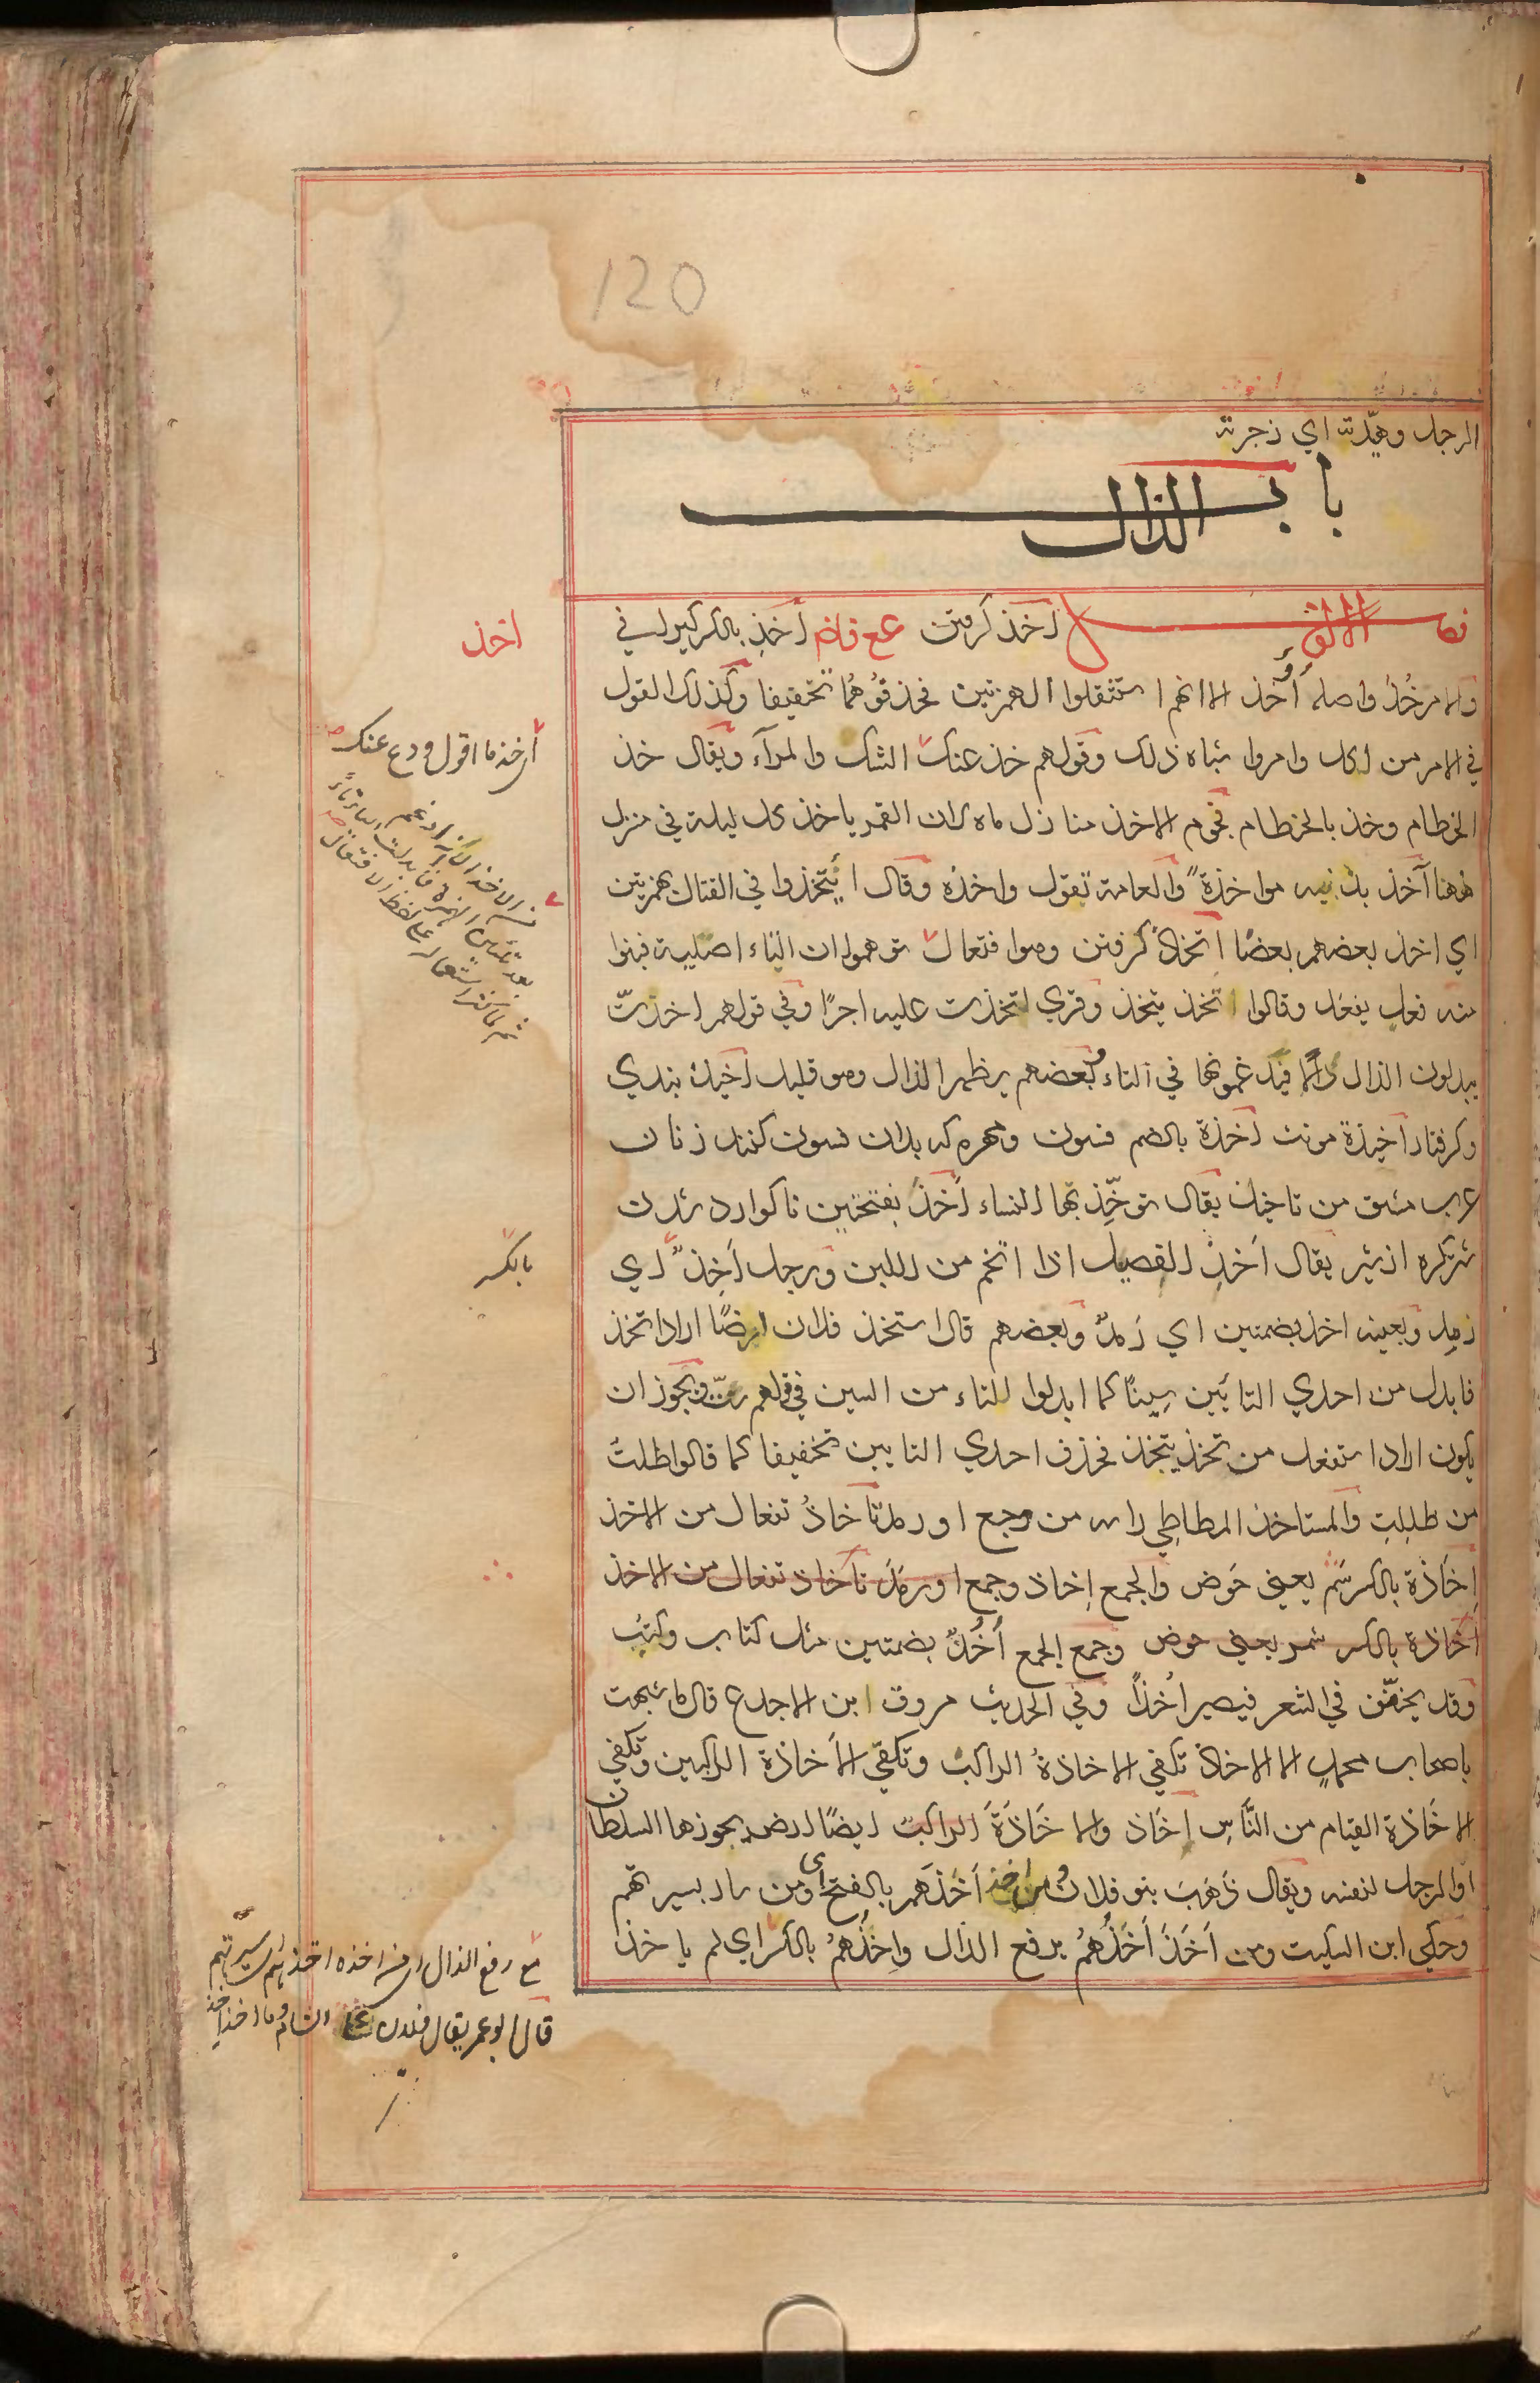 120
الرجل وهيّدته اي زجرته
باب الذال
فصل الالف اخذ كرفتن ع ع ف ا ض اخذ بالكسر كيراس في
والامر خُذ واصله أُؤخذ الا انهم استثقلوا الهمزتين فحذفوُهُما تخفيفا وكذلك القول
في الامر من اكل وامروا شباه ذلك وقولهم خذ عنك الشك والمرآء ويقال خذ
الخطام وخذ بالخطام نجوم الاخذ منازل ماه لان القمر ياخذ كل ليلة في منزل
ههنا آخذ بذنبه مواخذة والعامة تقول واخذه وقال ائتخذوا في القتال بهمزتين
اي اخذ بعضهم بعضًا اتخاذ كرفتن وهوا فتعال توهموا ان التاء اصلية فبنوا
منه فعل يفعل وقالوا اتخذ يتخذ وقري لتخذت عليه اجرًا وفي قولهم اخذتّ
يبدلون الذال تاءً فيدغمونها في التاء وبعضهم يظهر الذال وهو قليل اخيذ بندي
وكرفتار اخيذة مونث اخذة بالضم فسون ومهره كه بدان فسون كنند زنان
عرب مشق من تاخيذ يقال توخّذ بها النساء اخذ بفتحتين ناكوارد شدن
شتركره از شير يقال اَخِذ الفصيل اذا اتخم من اللبن ورجل اَخِذٌ اي
رَمِد وبعينه اخذ بضمتين اي رَمدٌ وبعضهم قال استخذ فلان ارضًا اراد اتخذ
فابدل من احدي التائين سِينًا كما ابدلوا التاء من السين في قولهم ستّ ويجوز ان
يكون اراد استفعل من تخذ يتخذ فحذف احدي التايين تخفيفا كما قالوا ظلتُ
من ظللِت والمستاخذ المطاطي راسه من وجع او رمد تآخاذ تفعال من الاخذ
اِخَاذة بالكسر شمر يعني حَوض والجمع اِخاذ وجمع او رمد تآخاذ تفعال من الاخذ
اخاذة بالكسر شمر يعني حوض وجمع الجمع اُخُذٌ بضمتين مثل كتاب وكتب
وقد يخفّف في الشعر فيصير اُخذاً وفي الحديث مسروق ابن الاجدع قال ما شبهت
باصحاب محمدٍ الا الاخاذ تكفي الاخاذةُ الراكب وتكفي الاَخاذة الراكبين وتكفي
الاخَاذة الفيام من النَّاسِ اخَاذ والاخَاذَةَ الراكب ايضًا ارض يحوزها السلطان
او الرجل لنفسه ويقال ذَهَبَ بنو فلان ومن اخذ اَخذَهم بالفتح اي ومن سار بسيرتهم
وحكي ابن السكيت ومن اَخَذَ اَخَذُهُمُ برفع الذال واِخذَهمُ بالكسر اي لم ياخذ
اخذ
اي خذ ما اقول ودع عنك
من الاخذ الا انه ادغم
بعد تليين الهمزة وابدلت الياء تاءً
ثم لما كثر استعماله علي لفظ الافتعال
بالكسر
مع رفع الذال اي من اخذه اخذهم وسيرتهم
قال ابو عمر يقال فلان الشام وما اخذ اخذ